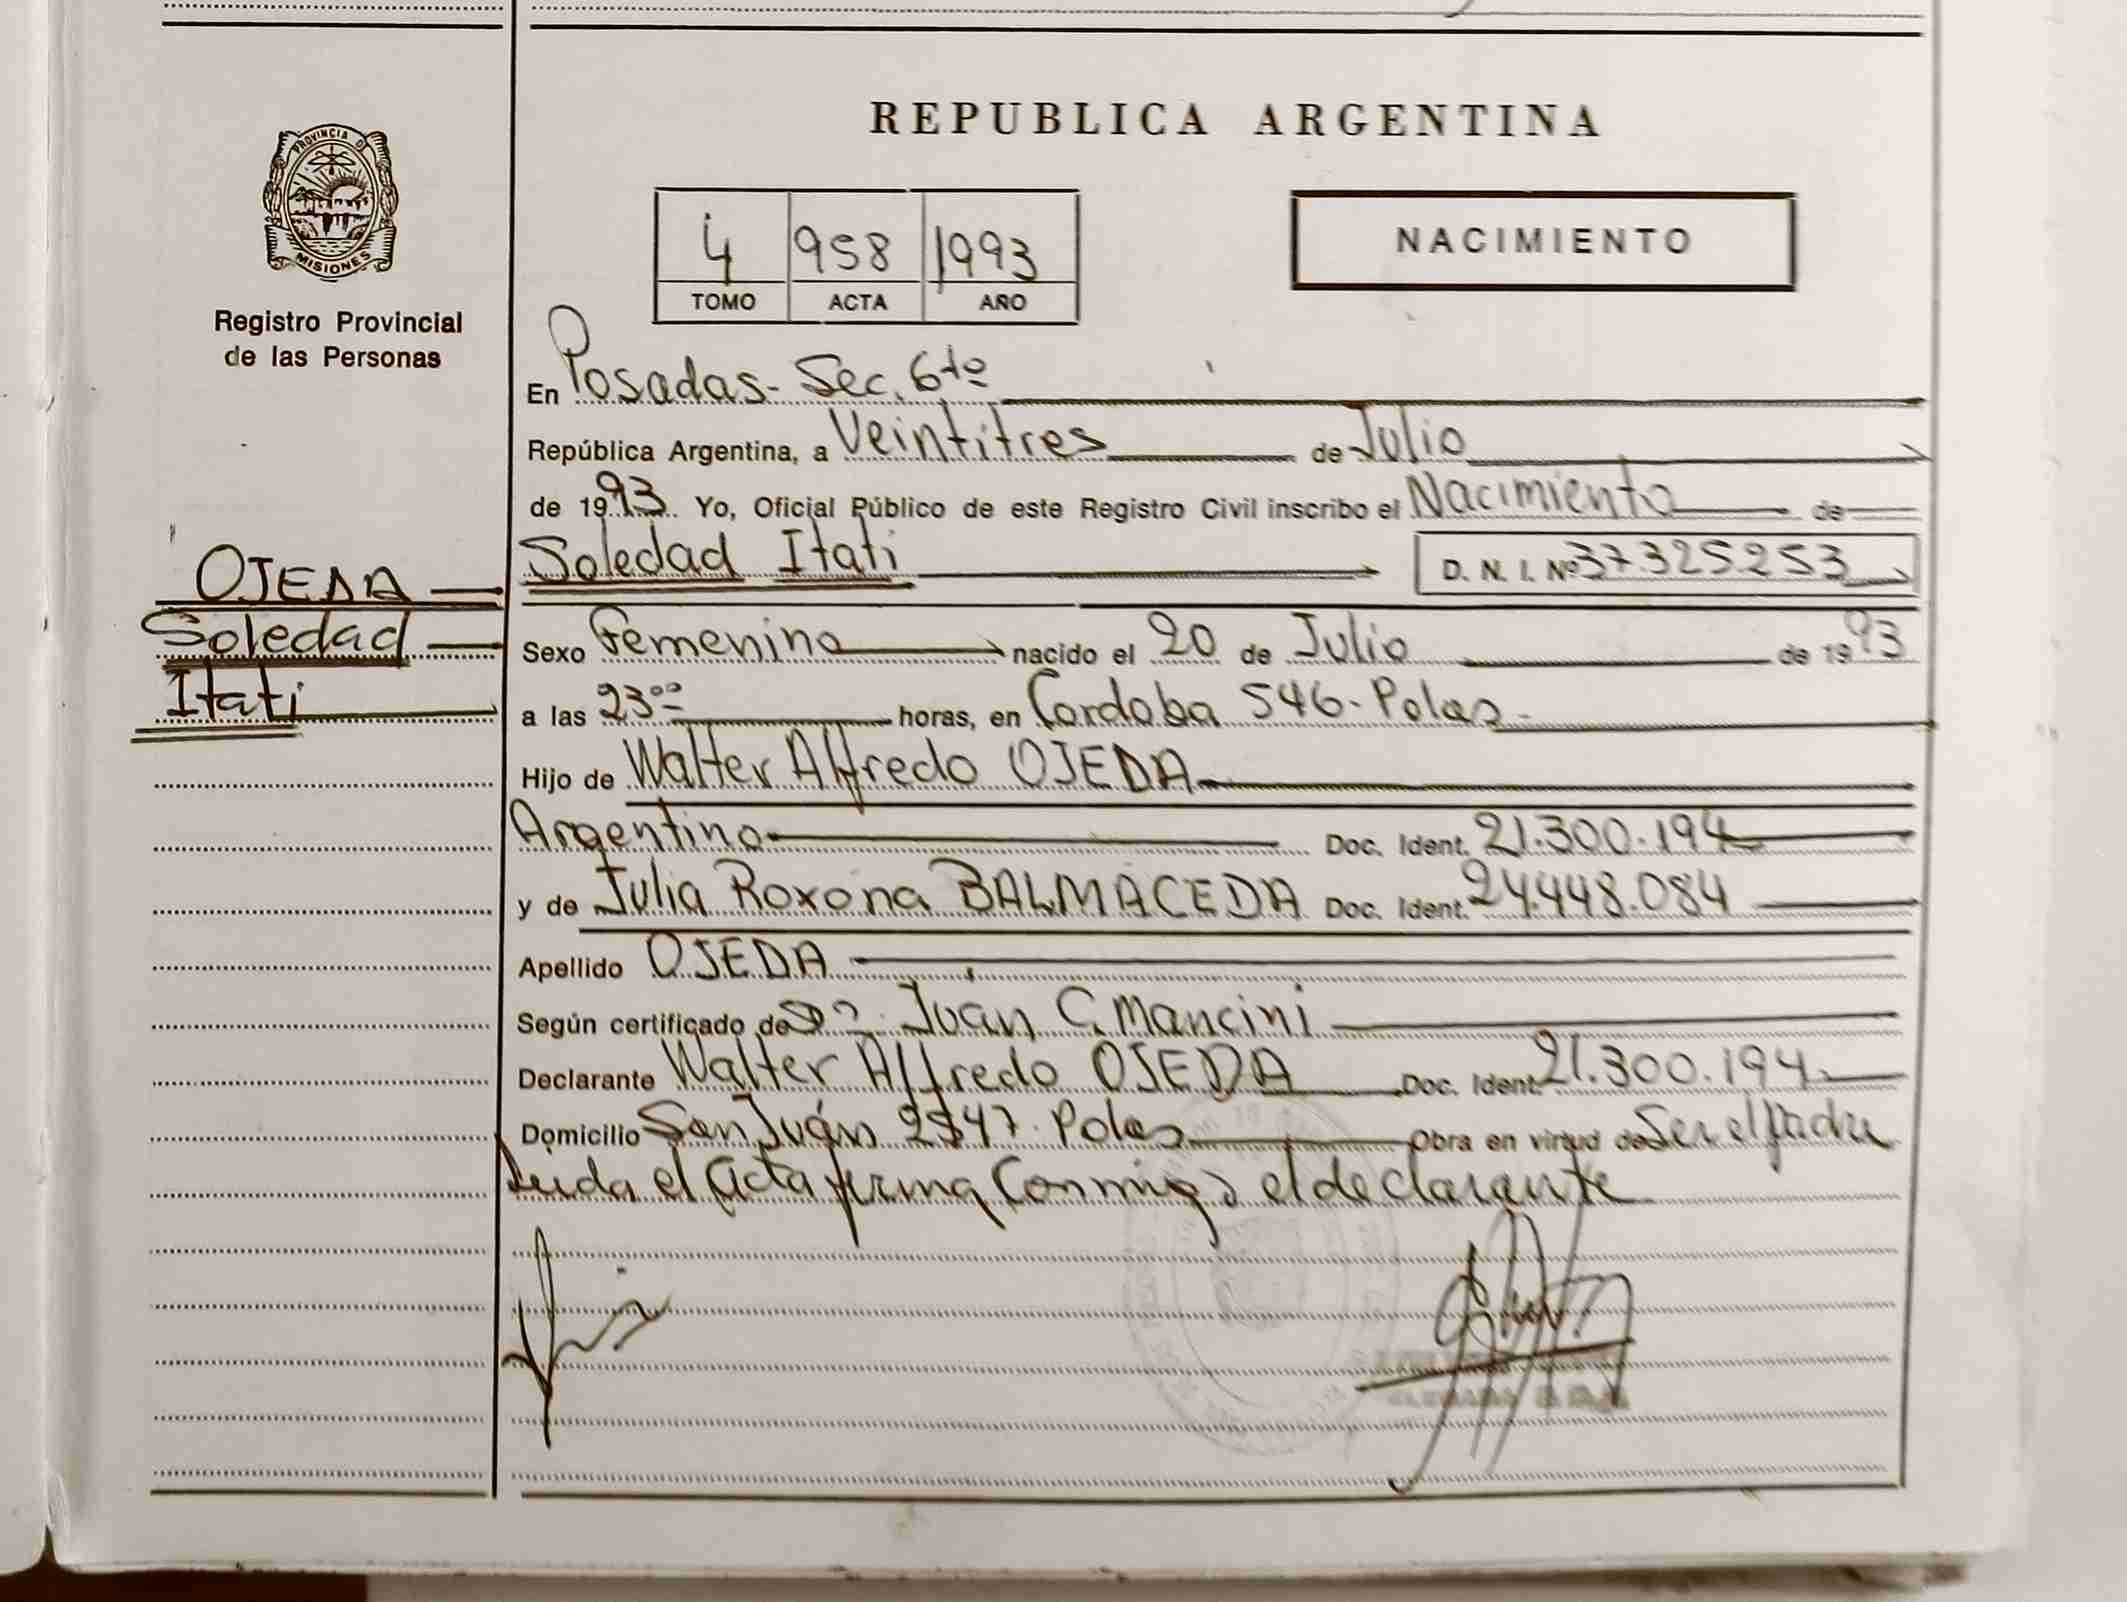 REPUBLICA ARGENTINA
PROVINCIA D
MISIONES
Registro Provincial
de las Personas
4 958 1993
TOMO ACTA AÑO
NACIMIENTO
En Posadas - Sec. 6ta
República Argentina, a Veintitres de Julio
de 1993. Yo, Oficial Público de este Registro Civil inscribo el Nacimiento de
OJEDA
Soledad
Itati
Soledad Itati D. N. I. Nº 37.325.253
Sexo Femenino nacido el 20 de Julio de 1993
a las 23ºº horas, en Cordoba 546 - Pdas -
Hijo de Walter Alfredo OJEDA
Argentino Doc. Ident. 21.300.194
y de Julia Roxana BALMACEDA Doc. Ident. 24.448.084
Apellido OJEDA
Según certificado de Juan C. Mancini
Declarante Walter Alfredo OJEDA Doc. Ident. 21.300.194
Domicilio San Juán 2547 - Pdas Obra en virtud de Ser el padre
Leida el acta firma Conmigo el declarante